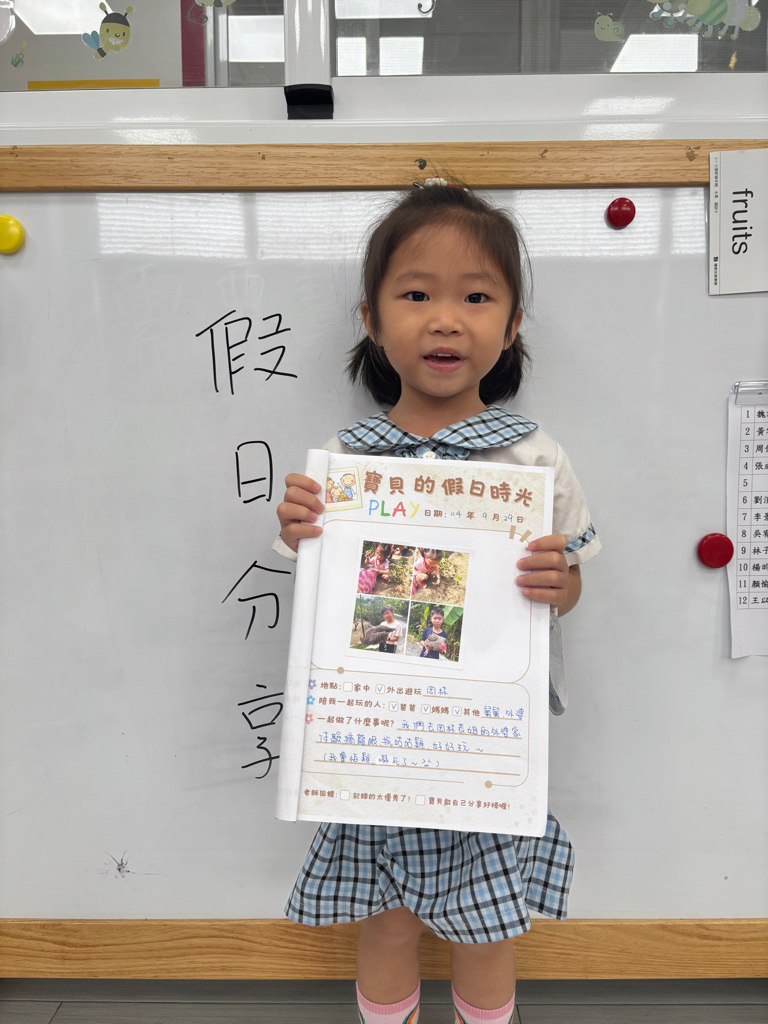 假
日
分
享
fruits
寶貝的假日時光
PLAY 日期: 114 年 9 月 29 日
地點: □ 家中 ☑ 外出遊玩 員林
陪我一起玩的人: ☑ 爸爸 ☑ 媽媽 ☑ 其他 外婆
一起做了什麼事呢? 我們去員林表姐的外婆家
體驗 好好玩~
老師回饋: □ 記錄的太優秀了! □ 寶貝能自己分享好棒喔!
1
2 黃
3 周
4 張
5
6 劉
7 李
8 吳
9 林
10 楊
11 顏
12 王